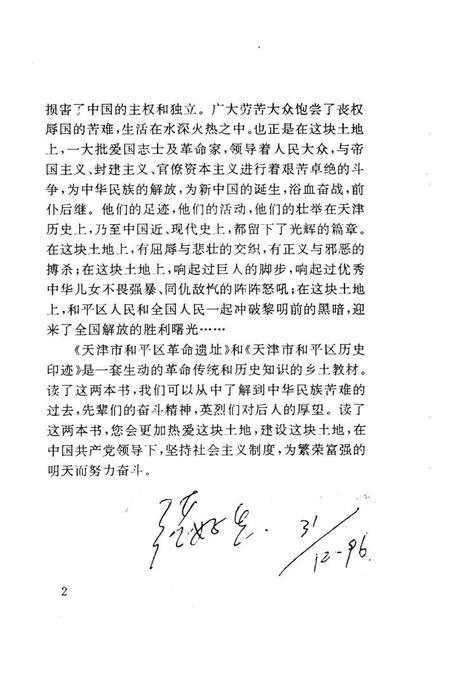 损害了中国的主权和独立。广大劳苦大众饱尝了丧权
辱国的苦难,生活在水深火热之中。也正是在这块土地
上,一大批爱国志士及革命家,领导着人民大众,与帝
国主义、封建主义、官僚资本主义进行着艰苦卓绝的斗
争,为中华民族的解放,为新中国的诞生,浴血奋战,前
仆后继。他们的足迹,他们的活动,他们的壮举在天津
历史上,乃至中国近、现代史上,都留下了光辉的篇章。
在这块土地上,有屈辱与悲壮的交织,有正义与邪恶的
搏杀;在这块土地上,响起过巨人的脚步,响起过优秀
中华儿女不畏强暴、同仇敌忾的阵阵怒吼;在这块土地
上,和平区人民和全国人民一起冲破黎明前的黑暗,迎
来了全国解放的胜利曙光……
《天津市和平区革命遗址》和《天津市和平区历史
印迹》是一套生动的革命传统和历史知识的乡土教材。
读了这两本书,我们可以从中了解到中华民族苦难的
过去,先辈们的奋斗精神,英烈们对后人的厚望。读了
这两本书,您会更加热爱这块土地,建设这块土地,在
中国共产党领导下,坚持社会主义制度,为繁荣富强的
明天而努力奋斗。
张好生. 31/12-96.
2